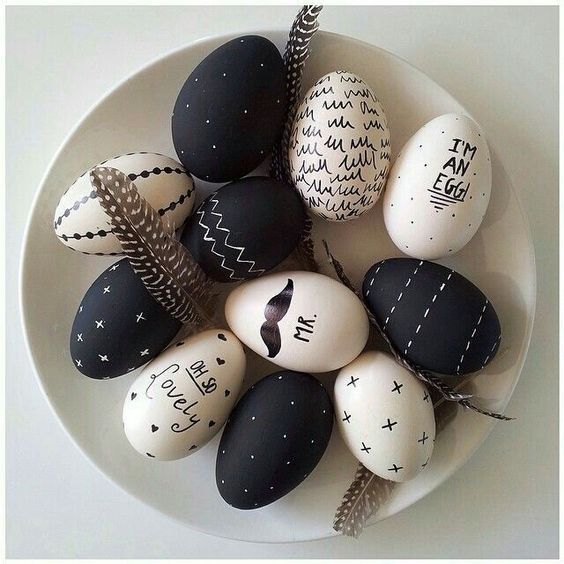 I'M
AN
EGG!
MR.
OH SO
Lovely